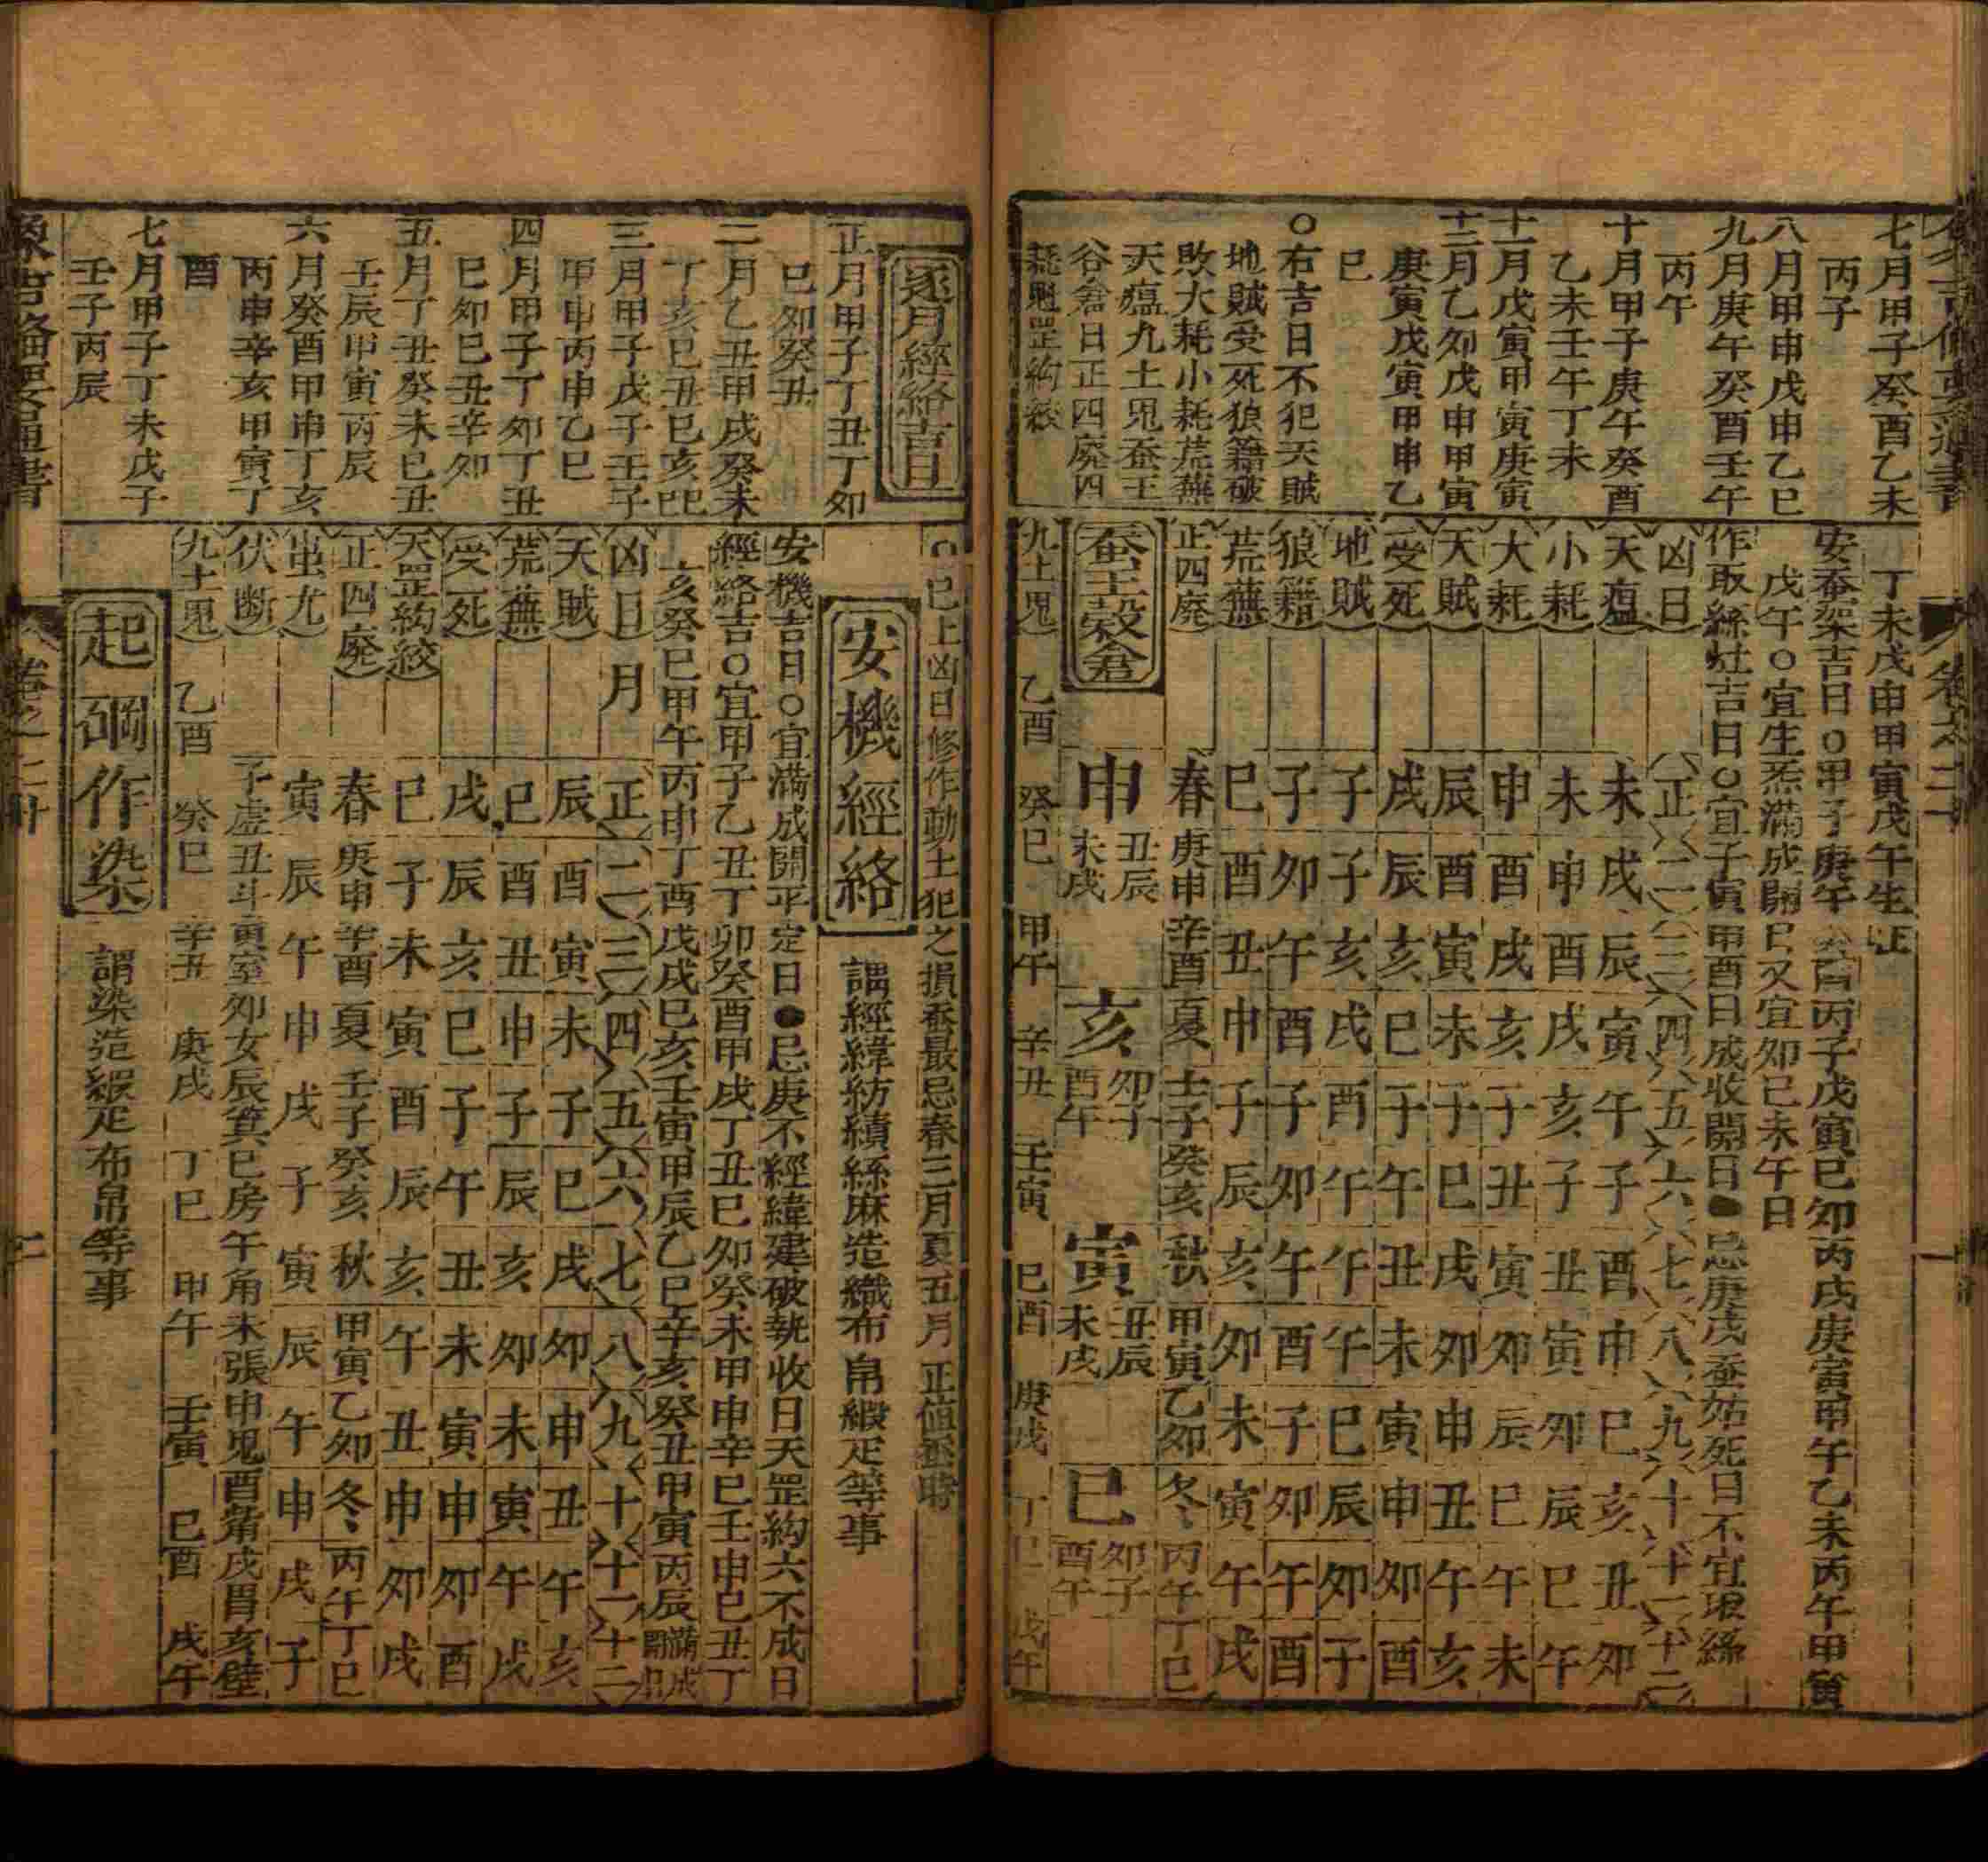 七月甲子癸酉乙未
丙子
八月甲申戊申乙巳
九月庚午癸酉壬午
丙午
十月甲子庚午癸酉
乙未壬午丁未
十一月戊寅甲寅庚寅
十二月乙卯戊申甲寅
庚寅戊寅甲申乙
巳
○右吉日不犯天賊
地賊受死狼籍破
敗大耗小耗荒蕪
天瘟九土鬼蚕王
谷倉日正四廢四
耗魁罡絇絞
丁未戊申甲寅戊午生
安蚕架吉日○甲子庚午 丙子戊寅巳卯丙戌庚寅甲午乙未丙午甲寅
戊午○宜生炁滿成開日又宜卯巳未午日
作取絲灶吉日○宜子寅甲酉日成收開日●忌庚戌蚕姑死日不宜取絲
凶日 正 二 三 四 五 六 七 八 九 十 十一 十二
天瘟 未 戌 辰 寅 午 子 酉 申 巳 亥 丑 卯
小耗 未 申 酉 戌 亥 子 丑 寅 卯 辰 巳 午
大耗 申 酉 戌 亥 子 丑 寅 卯 辰 巳 午 未
天賊 辰 酉 寅 未 子 巳 戌 卯 申 丑 午 亥
受死 戌 辰 亥 巳 子 午 丑 未 寅 申 卯 酉
地賊 子 子 亥 戌 酉 午 午 午 巳 辰 卯 子
狼籍 子 卯 午 酉 子 卯 午 酉 子 卯 午 酉
荒蕪 巳 酉 丑 申 子 辰 亥 卯 未 寅 午 戌
正四廢 春庚申辛酉 夏壬子癸亥 秋甲寅乙卯 冬丙午丁巳
蚕王穀倉 申丑辰未戌 亥卯子酉午 寅丑辰未戌 巳卯子酉午
九土鬼 乙酉 癸巳 甲午 辛丑 壬寅 巳酉 庚戌 丁巳 戊午
○巳上凶日修作動土犯之損蚕最忌春三月夏五月正值蚕時
逐月經絡吉日
正月甲子丁丑丁卯
巳卯癸丑
二月乙丑甲戌癸未
丁亥巳丑巳亥
三月甲子戊子壬子
甲申丙申乙巳
四月甲子丁卯丁丑
巳卯巳丑辛卯
五月丁丑癸未巳丑
壬辰甲寅丙辰
六月癸酉甲申丁亥
丙申辛亥甲寅丁
酉
七月甲子丁未戊子
壬子丙辰
安機經絡 謂經緯紡績絲麻造織布帛緞疋等事
安機吉日○宜滿成開平定日●忌庚不經緯建破執收日天罡絇六不成日
經絡吉○宜甲子乙丑丁卯癸酉甲戌丁丑巳卯癸未甲申辛巳壬申巳丑丁
亥癸巳甲午丙申丁酉戊戌巳亥壬寅甲辰乙巳辛亥癸丑甲寅丙辰滿成開日
凶日 月 正 二 三 四 五 六 七 八 九 十 十一 十二
天賊 辰 酉 寅 未 子 巳 戌 卯 申 丑 午 亥
荒蕪 巳 酉 丑 申 子 辰 亥 卯 未 寅 午 戌
受死 戌 辰 亥 巳 子 午 丑 未 寅 申 卯 酉
天罡絇絞 巳 子 未 寅 酉 辰 亥 午 丑 申 卯 戌
正四廢 春庚申辛酉 夏壬子癸亥 秋甲寅乙卯 冬丙午丁巳
蚩尤 寅 辰 午 申 戌 子 寅 辰 午 申 戌 子
伏斷 子虛丑斗寅室卯女辰箕巳房午角未張申鬼酉觜戌胃亥壁
九土鬼 乙酉 癸巳 辛丑 庚戌 丁巳 甲午 壬寅 巳酉 戊午
起碙作染 謂染造緞疋布帛等事